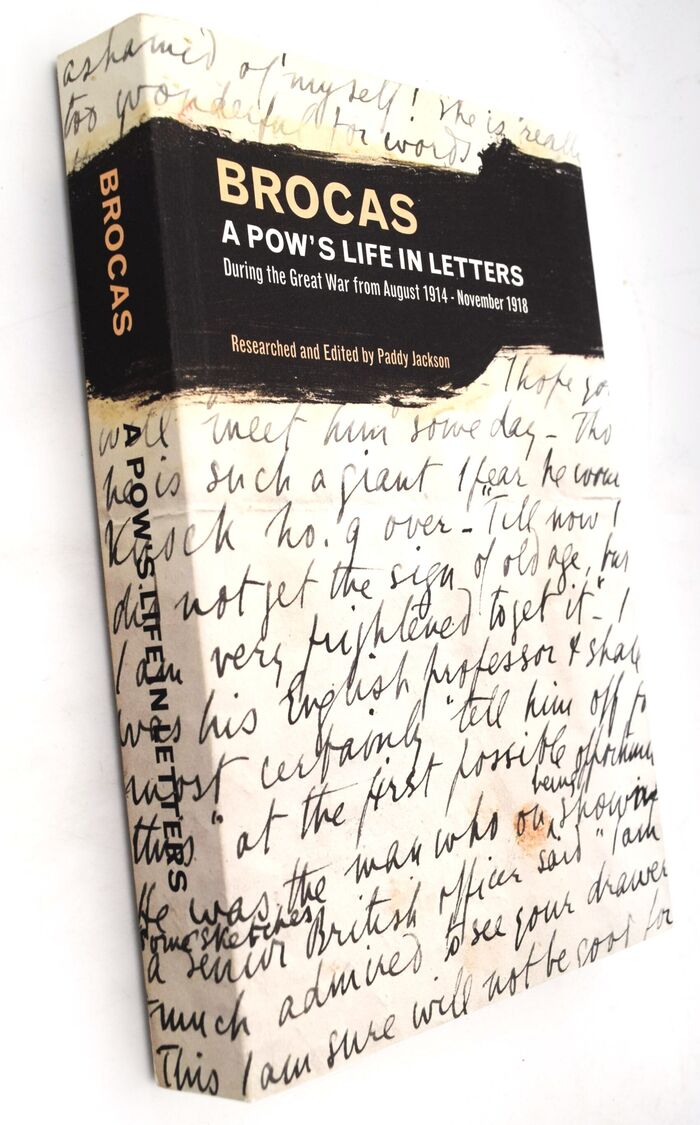 ashamed of myself! She is really
too wonderful for words
BROCAS
A POW'S LIFE IN LETTERS
During the Great War from August 1914 - November 1918
Researched and Edited by Paddy Jackson
I hope you
will meet him some day - Tho
he is such a giant I fear he woul
knock no. 9 over - "Till now I
did not get the sign of old age, but
I am very frightened to get it" - I
was his English professor & shall
most certainly "tell him off for
this" at the first possible opportunity
He was the man who on being showing
some sketches
a senior British officer said "I am
much admired to see your drawer
This I am sure will not be good for
BROCAS
A POW'S LIFE IN LETTERS